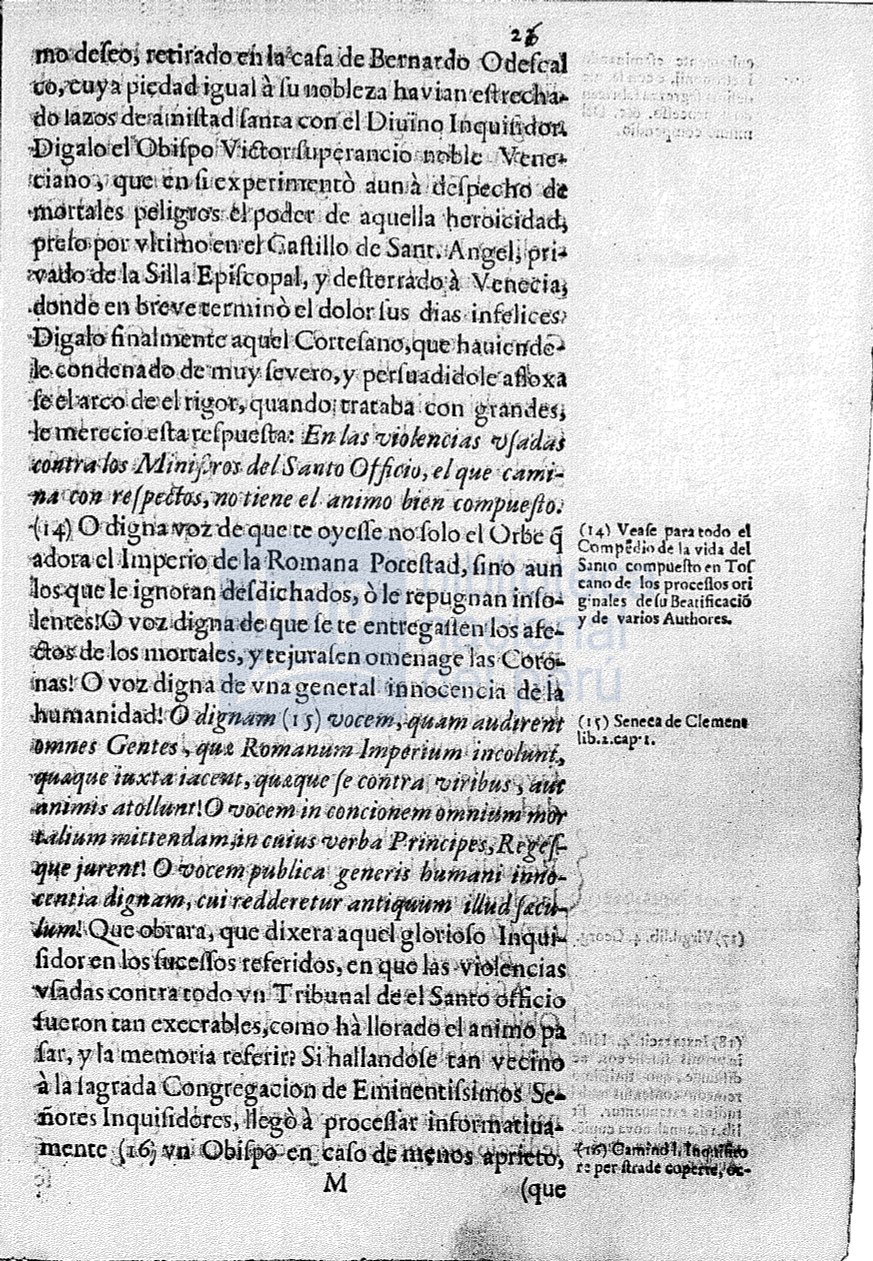 23
mo deſeo, retirado en la caſa de Bernardo Odeſcal
co, cuya piedad igual à ſu nobleza havian eſtrecha-
do lazos de amiſtad ſanta con el Diuino Inquiſidor.
Digalo el Obiſpo Victor ſuperancio noble Vene-
ciano, que en ſi experimentò aun à deſpecho de
mortales peligros el poder de aquella heroicidad,
preſo por vltimo en el Caſtillo de Sant. Angel, pri-
vado de la Silla Epiſcopal, y deſterrado à Venecia,
donde en breve terminò el dolor ſus dias infelices.
Digalo finalmente aquel Corteſano, que hauiendo-
le condenado de muy ſevero, y perſuadidole afloxa
ſe el arco de el rigor, quando trataba con grandes,
le merecio eſta reſpueſta: En las violencias vſadas
contra los Miniſtros del Santo Officio, el que cami-
na con reſpectos, no tiene el animo bien compueſto.
(14) O digna voz de que te oyeſſe no ſolo el Orbe q̃
adora el Imperio de la Romana Poteſtad, ſino aun
los que le ignoran deſdichados, ò le repugnan inſo-
lentes! O voz digna de que ſe te entregaſſen los afe-
ctos de los mortales, y te juraſen omenage las Coro-
nas! O voz digna de vna general innocencia de la
humanidad! O dignam (15) vocem, quam audirent
omnes Gentes, quæ Romanum Imperium incolunt,
quæque iuxta iacent, quæque ſe contra viribus, aut
animis atollunt! O vocem in concionem omnium mor
talium mittendam, in cuius verba Principes, Regeſ-
que jurent! O vocem publica generis humani inno-
centia dignam, cui redderetur antiquum illud ſæcu-
lum! Que obrara, que dixera aquel glorioſo Inqui-
ſidor en los ſuceſſos referidos, en que las violencias
vſadas contra todo vn Tribunal de el Santo officio
fueron tan execrables, como hà llorado el animo pa
ſar, y la memoria referir? Si hallandoſe tan vecino
à la ſagrada Congregacion de Eminentiſsimos Se-
ñores Inquiſidores, llegò à proceſſar informatiua-
mente (16) vn Obiſpo en caſo de menos aprieto,
M
(que
(14) Veaſe para todo el
Compẽdio de la vida del
Santo compueſto en Toſ
cano de los proceſſos ori
ginales de ſu Beatificació
y de varios Authores.
(15) Seneca de Clement
lib.2.cap.1.
(16) Camino l. Inquiſito
re per ſtrade coperte, oc-
biblioteca
nacional
del perú